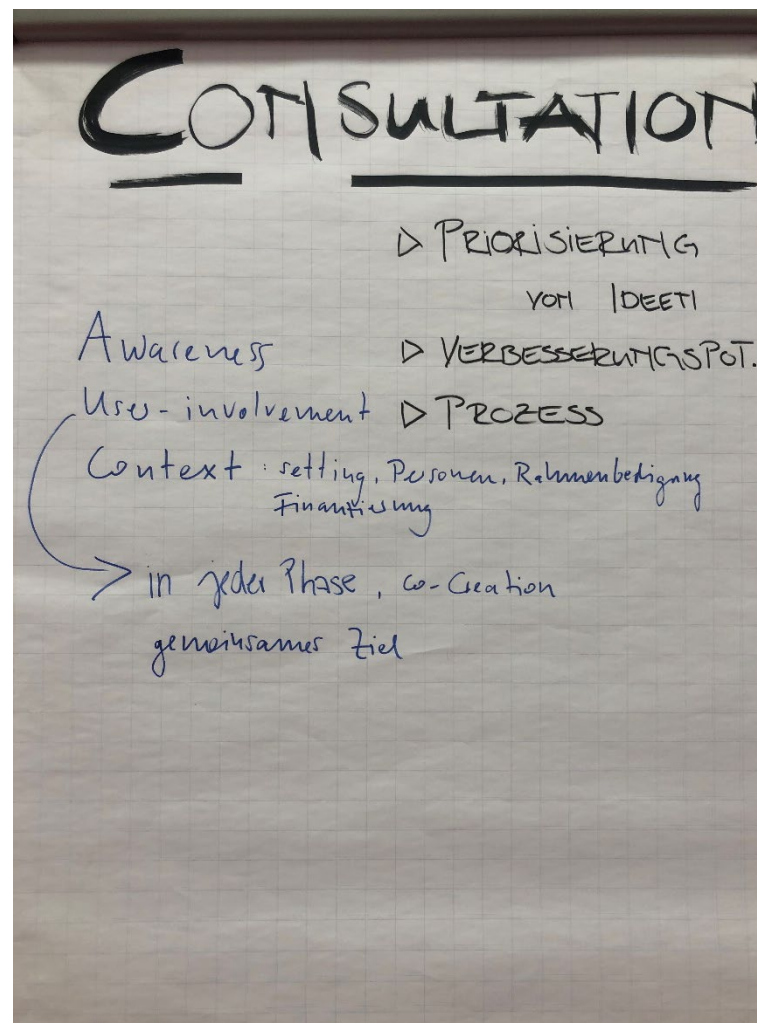 CONSULTATION
▷ PRIORISIERUNG
VON IDEEN
Awareness
▷ VERBESSERUNGSPOT.
User-involvement
▷ PROZESS
Context: setting, Personen, Rahmenbedigung
Finanzierung
in jeder Phase, co-Creation
gemeinsames Ziel